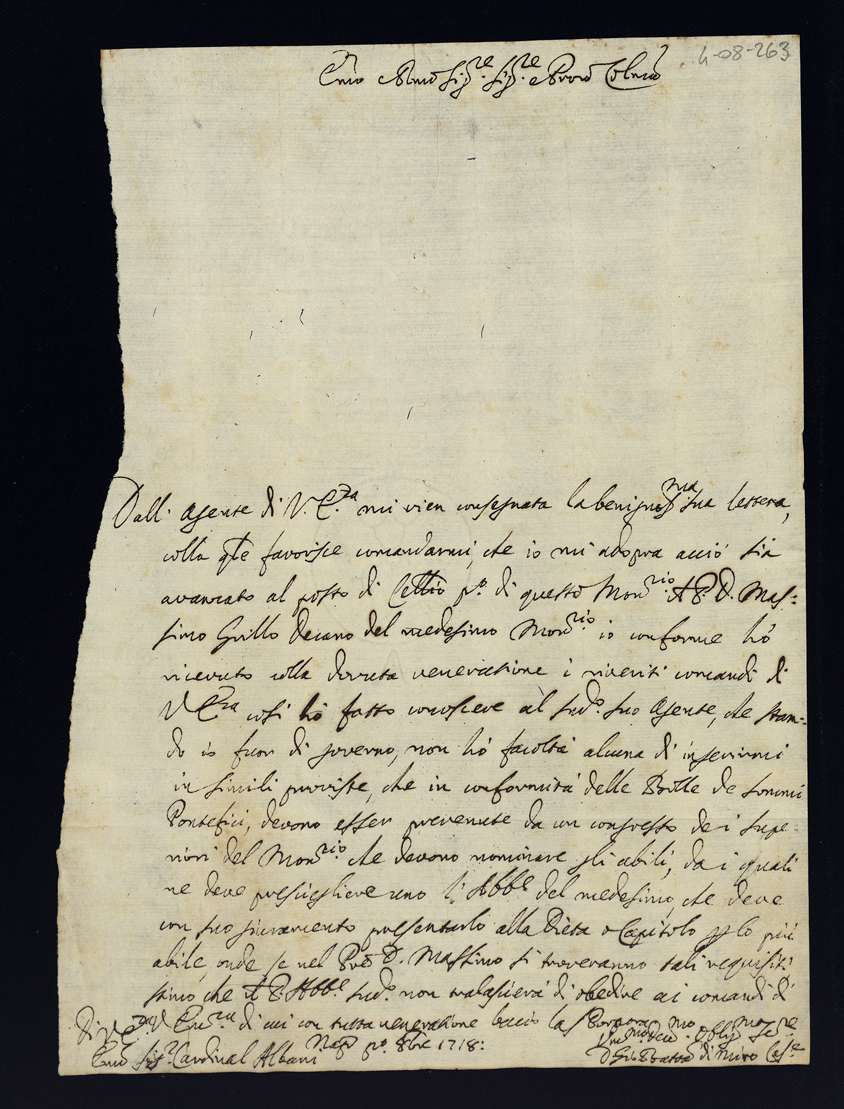 4-08-263
Emo e Rmo Sig.re Sig.re e Pron Colmo
Dall' Agente di V. E.za mi vien consegnata la benignis.ma sua lettera,
colla qle favorisce comandarmi, che io mi adopra acciò sia
avanzato al posto di Cellio p.o di questo Mon.rio il P. D. Mas=
simo Grillo Decano del medesimo Mon.rio io conforme hò
ricevuto colla dovuta venerazione i riveriti comandi di
V. E.za così hò fatto conoscere al sud.o suo Agente, che stan=
do io fuor di governo, non hò facoltà alcuna di inserirmi
in simili proviste, che in conformità delle Bolle de Sommi
Pontefici, devono esser prevenute da un congresso de i Supe=
riori del Mon.rio che devono nominare gli abili, da i quali
ne deve presciegliere uno l'Abb.e del medesimo, che deve
con suo giuramento presentarlo alla Dieta o Capitolo p lo più
abile, onde se nel Pre D. Massimo si troveranno tali requisiti
stimo che il P. Abb.e sud.o non tralascierà di obedire ai comandi di
V. Em.za di cui con tutta venerazione bacio la S. Porpora
Di V. E.za Nap. p.o 8bre 1718:
Emo Sig.r Cardinal Albani
Um.mo Dev.mo Obblig.mo Se.re
D. Gio. Batta di Miro Cas.e